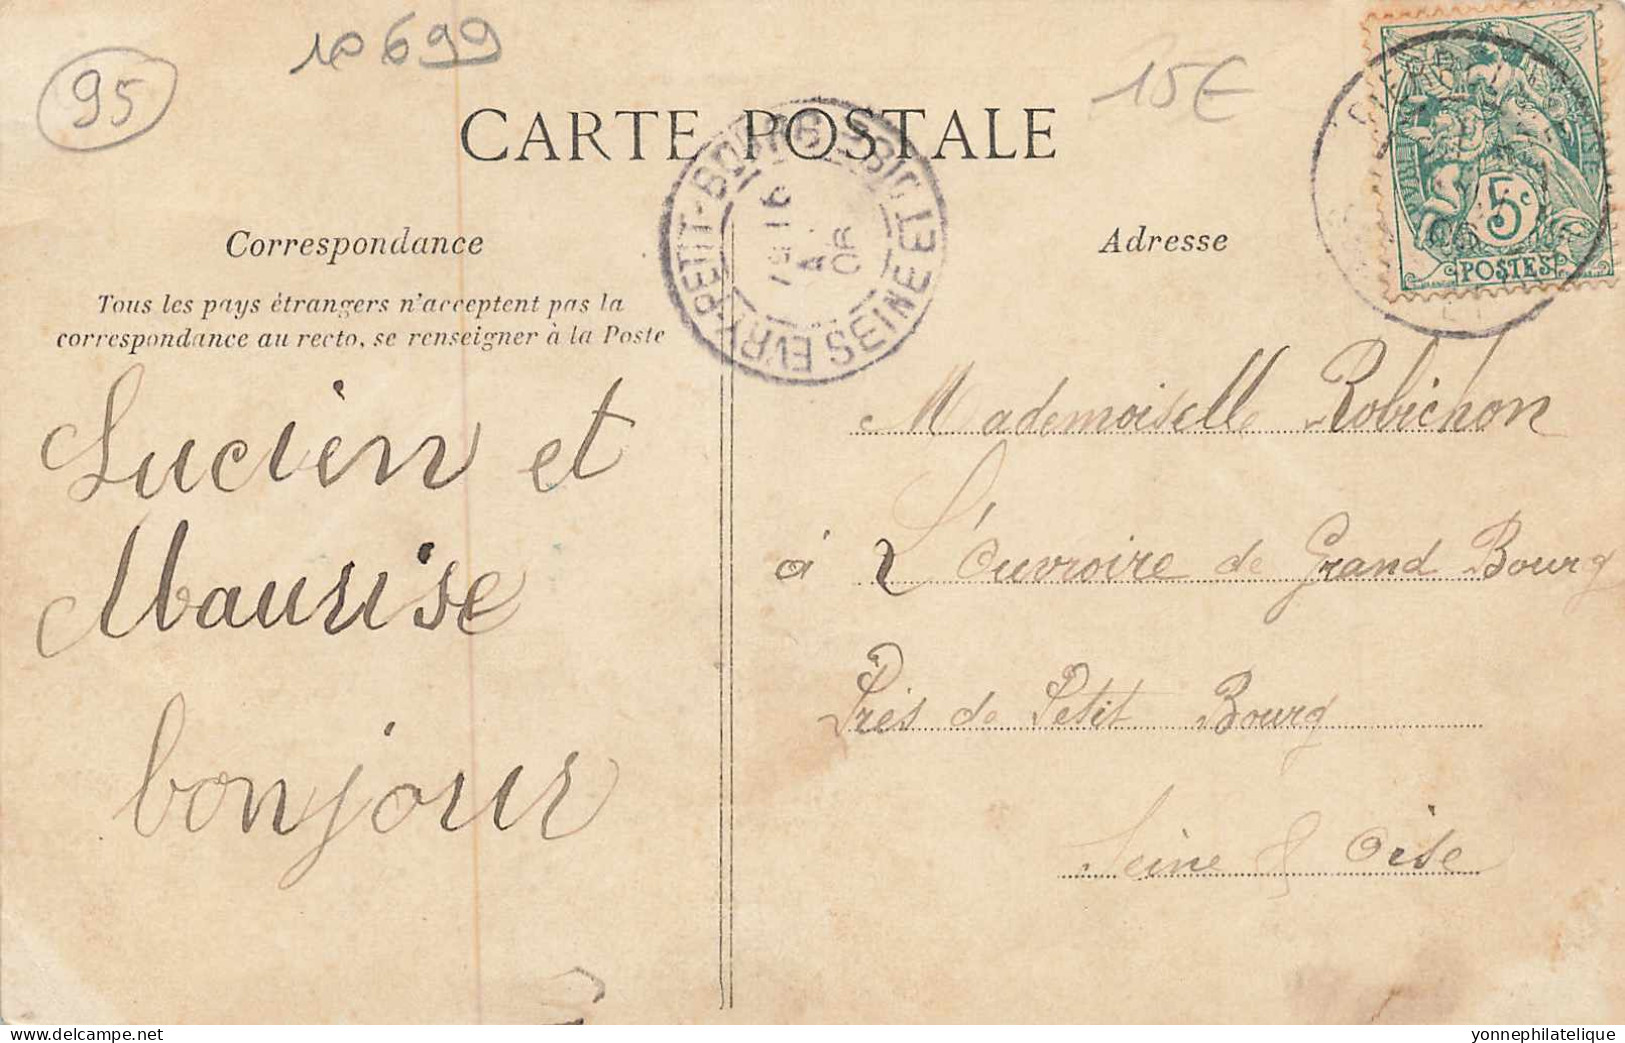 95
10699
15€
CARTE POSTALE
Correspondance
Adresse
Tous les pays étrangers n'acceptent pas la
correspondance au recto, se renseigner à la Poste
EVRY-PETIT-BOURG
SEINE ET
5c
POSTES
Lucien et
Maurise
bonjour
Mademoiselle Robichon
à L'Ouvroire de Grand Bourg
Près de Petit Bourg
Seine & Oise
www.delcampe.net
yonnephilatelique